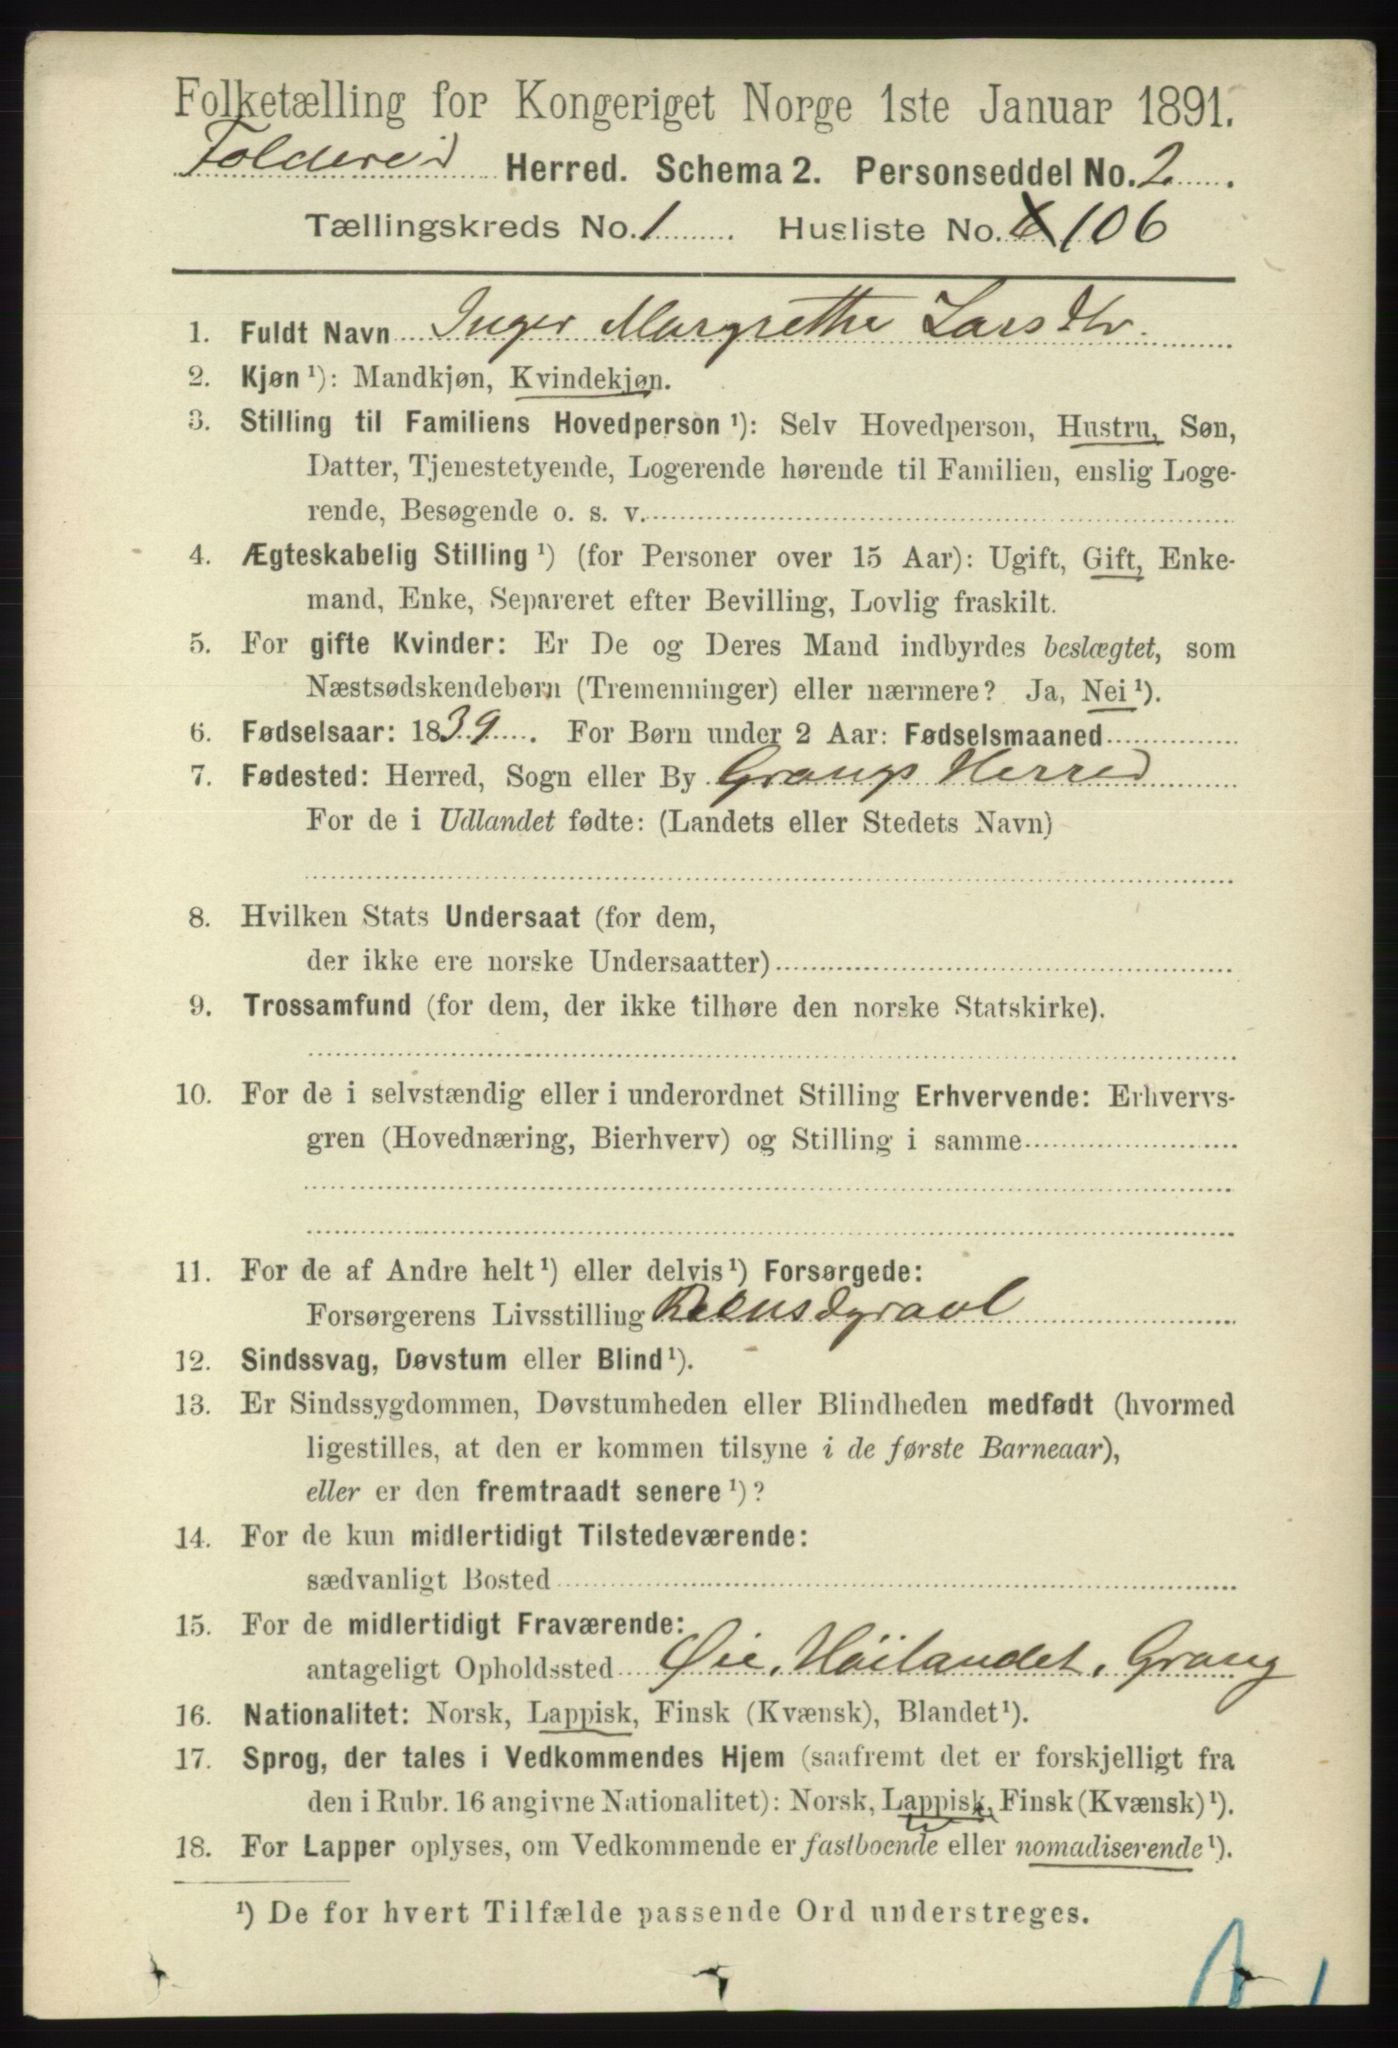 Folketælling for Kongeriget Norge 1ste Januar 1891.
Foldereid Herred. Schema 2. Personseddel No. 2
Tællingskreds No. 1 Husliste No. 106
1. Fuldt Navn Inger Margrethe Larsdtr.
2. Kjøn ¹): Mandkjøn, Kvindekjøn.
3. Stilling til Familiens Hovedperson ¹): Selv Hovedperson, Hustru, Søn,
Datter, Tjenestetyende, Logerende hørende til Familien, enslig Loge-
rende, Besøgende o. s. v.
4. Ægteskabelig Stilling ¹) (for Personer over 15 Aar): Ugift, Gift, Enke-
mand, Enke, Separeret efter Bevilling, Lovlig fraskilt.
5. For gifte Kvinder: Er De og Deres Mand indbyrdes beslægtet, som
Næstsødskendebørn (Tremenninger) eller nærmere? Ja, Nei ¹).
6. Fødselsaar: 1839. For Børn under 2 Aar: Fødselsmaaned
7. Fødested: Herred, Sogn eller By Grongs Herred
For de i Udlandet fødte: (Landets eller Stedets Navn)
8. Hvilken Stats Undersaat (for dem,
der ikke ere norske Undersaatter)
9. Trossamfund (for dem, der ikke tilhøre den norske Statskirke).
10. For de i selvstændig eller i underordnet Stilling Erhvervende: Erhvervs-
gren (Hovednæring, Bierhverv) og Stilling i samme
11. For de af Andre helt ¹) eller delvis ¹) Forsørgede:
Forsørgerens Livsstilling Reensdyravl
12. Sindssvag, Døvstum eller Blind ¹).
13. Er Sindssygdommen, Døvstumheden eller Blindheden medfødt (hvormed
ligestilles, at den er kommen tilsyne i de første Barneaar),
eller er den fremtraadt senere ¹)?
14. For de kun midlertidigt Tilstedeværende:
sædvanligt Bosted
15. For de midlertidigt Fraværende:
antageligt Opholdssted Øie, Höilandet, Grong
16. Nationalitet: Norsk, Lappisk, Finsk (Kvænsk), Blandet ¹).
17. Sprog, der tales i Vedkommendes Hjem (saafremt det er forskjelligt fra
den i Rubr. 16 angivne Nationalitet): Norsk, Lappisk, Finsk (Kvænsk) ¹).
18. For Lapper oplyses, om Vedkommende er fastboende eller nomadiserende ¹).
¹) De for hvert Tilfælde passende Ord understreges.